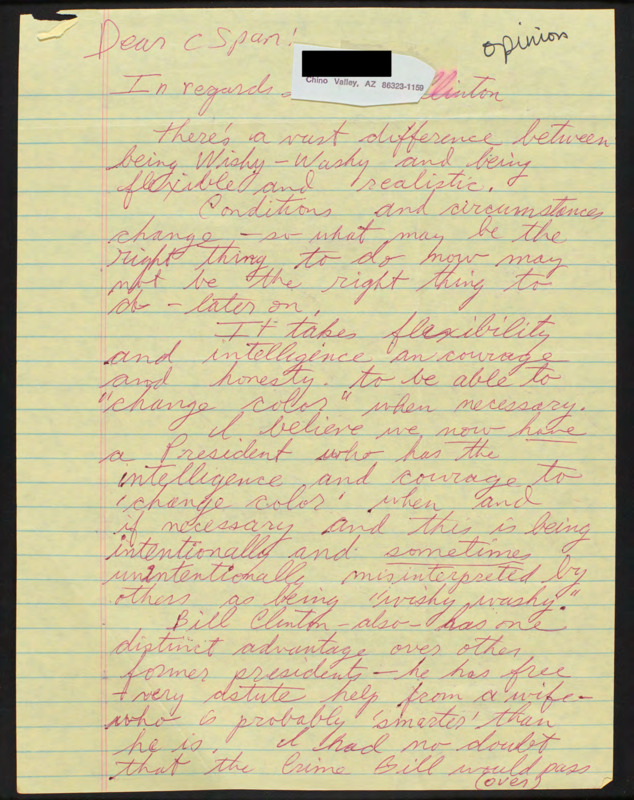 Dear C Span!
opinion
Chino Valley, AZ 86323-1159
In regards Clinton
there's a vast difference between
being Wishy-Washy and being
flexible and realistic.
Conditions and circumstances
change - so what may be the
right thing to do now may
not be the right thing to
do - later on.
It takes flexibility
and intelligence an courage
and honesty. to be able to
"change color" when necessary.
I believe we now have
a President who has the
intelligence and courage to
'change color' when and
if necessary and this is being
intentionally and sometimes
unintentionally misinterpreted by
others as being "wishy washy."
Bill Clinton - also - has one
distinct advantage over other
former presidents - he has free
+ very astute help from a wife -
who is probably 'smarter' than
he is. I had no doubt
that the Crime Bill would pass
(over)